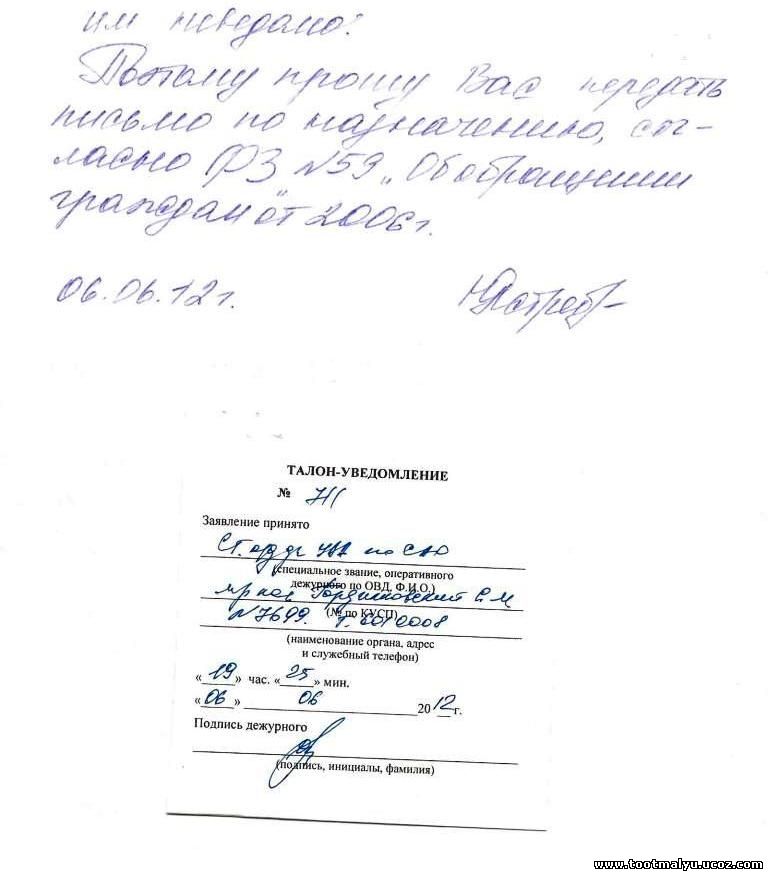 им неведамо.
Поэтому прошу Вас передать
письмо по назначению, сог-
ласно ФЗ №59 „Об обращении
граждан" от 2006г.
06.06.12г.
ТАЛОН-УВЕДОМЛЕНИЕ
№
Заявление принято
Ст.
(специальное звание, оперативного
дежурного по ОВД, Ф.И.О.)
(№ по КУСП)
№7699.
(наименование органа, адрес
и служебный телефон)
«19» час. «25» мин.
«06» 06 2012 г.
Подпись дежурного
(подпись, инициалы, фамилия)
www.tootmalyu.ucoz.com